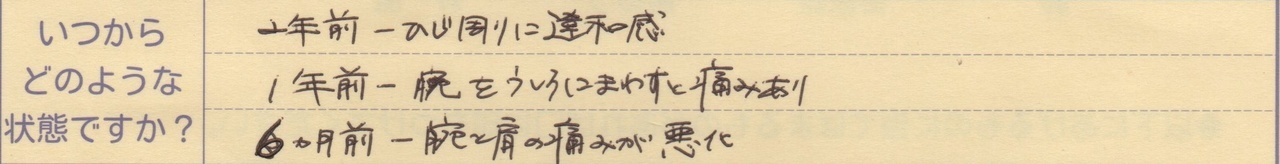 いつから
どのような
状態ですか？
2年前 ー ひじ周りに違和感
1年前 ー 腕をうしろにまわすと痛みあり
6ヵ月前 ー 腕と肩の痛みが悪化